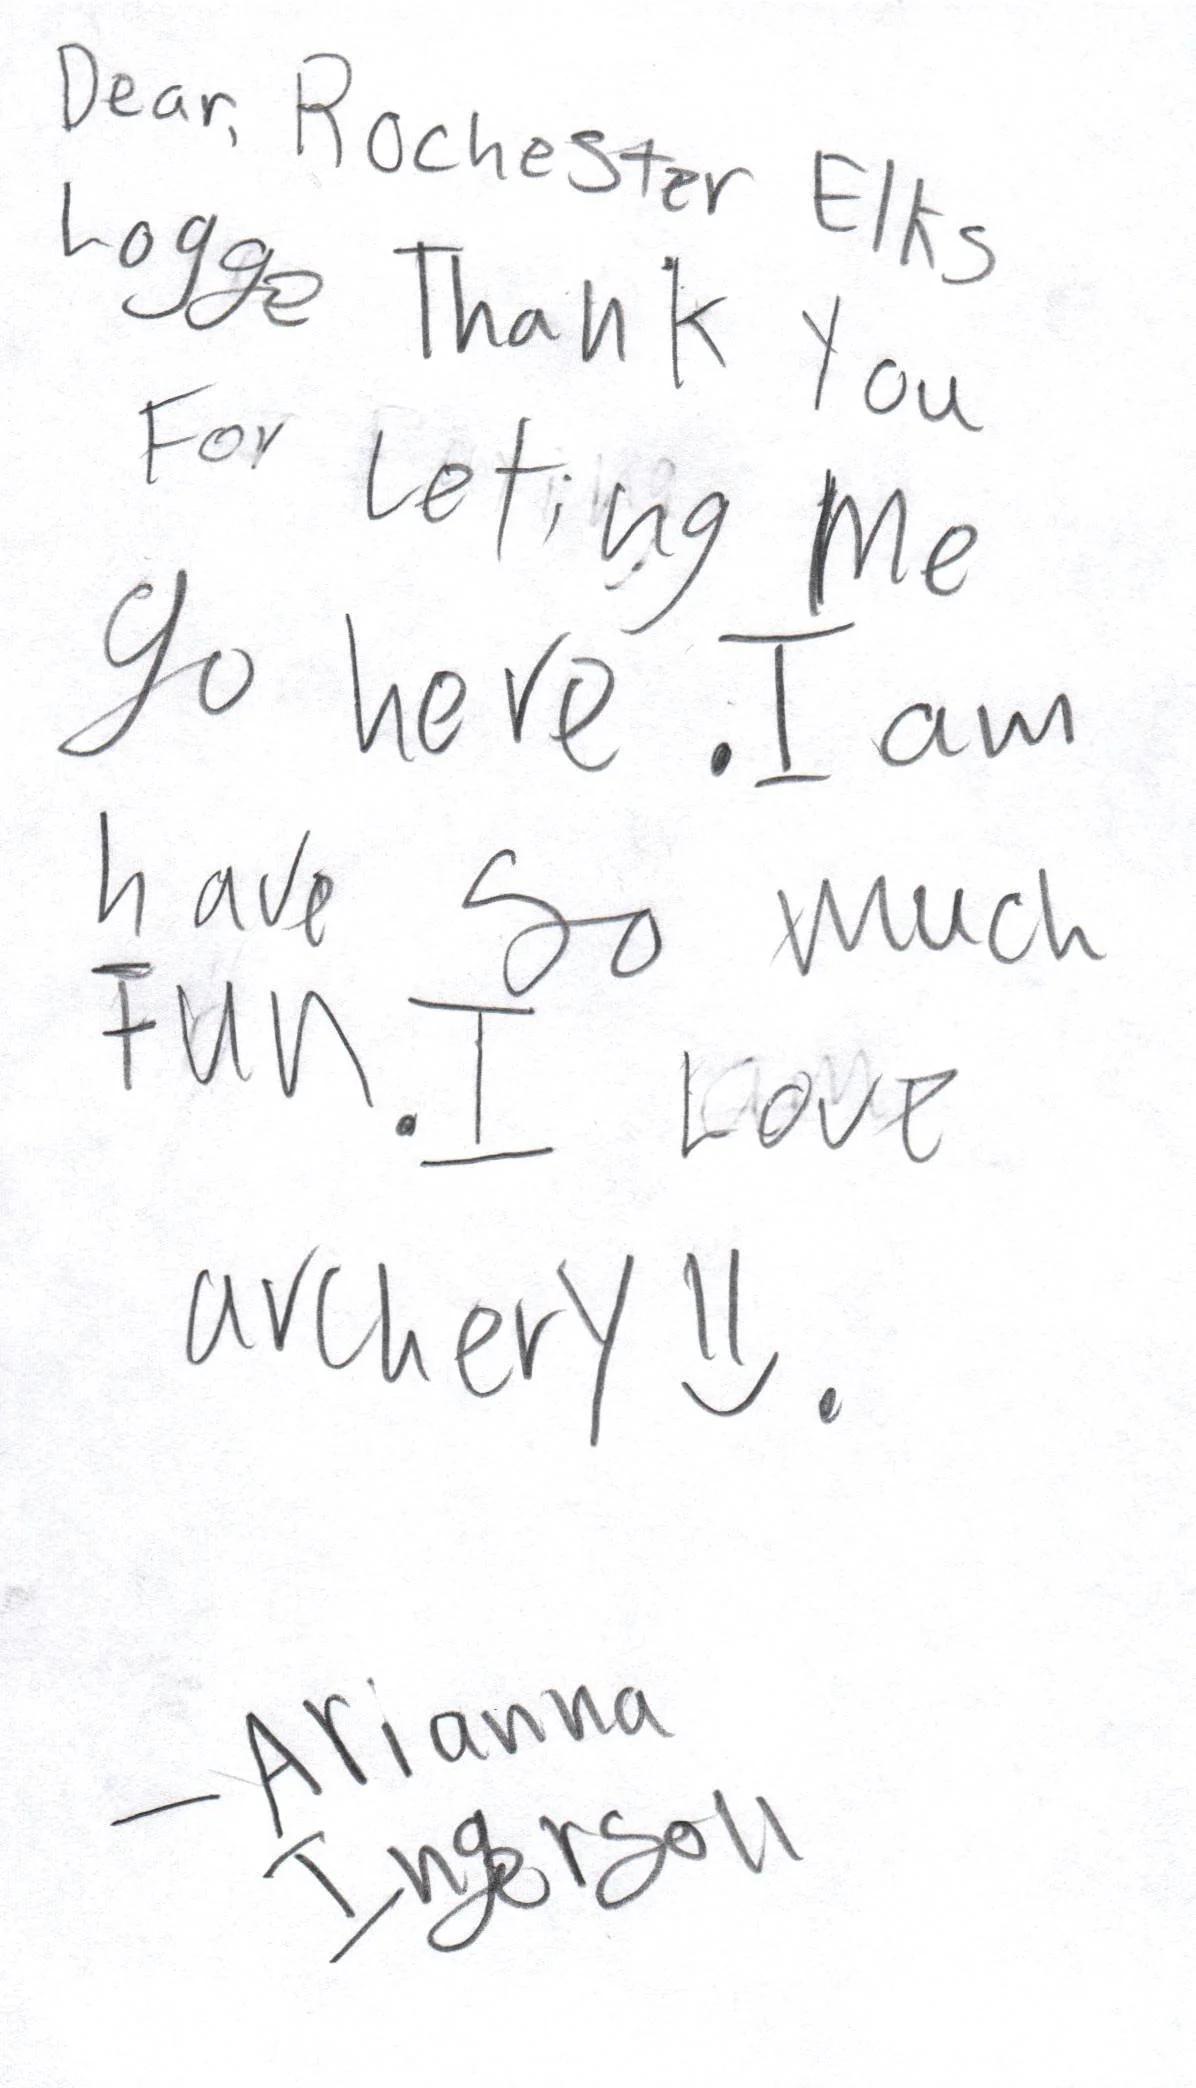 Dear, Rochester Elks
Logge Thank you
For Leting Me
go here .I am
have so much
Fun.I Love
archery!! .
—Arianna
Ingersoll